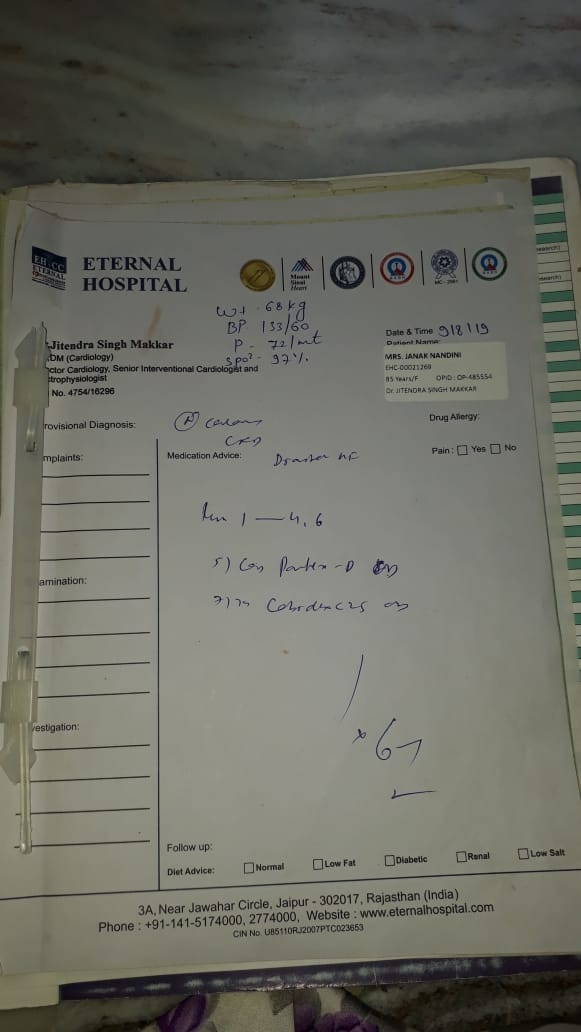 EHCC
ETERNAL
ETERNAL
HOSPITAL
Mount
Sinai
Heart
Wt - 68 kg
BP 133/60
P - 72/mt
SpO2 - 97%
Jitendra Singh Makkar
DM (Cardiology)
ctor Cardiology, Senior Interventional Cardiologist and
trophysiologist
No. 4754/16296
Date & Time 9/8/19
Patient Name:
MRS. JANAK NANDINI
EHC-00021269
85 Years/F OPID : OP-485554
Dr. JITENDRA SINGH MAKKAR
rovisional Diagnosis:
Drug Allergy:
mplaints:
Medication Advice:
Pain: Yes No
1 — 4, 6
5)
amination:
7)
vestigation:
Follow up:
Diet Advice: Normal Low Fat Diabetic Renal Low Salt
3A, Near Jawahar Circle, Jaipur - 302017, Rajasthan (India)
Phone : +91-141-5174000, 2774000, Website : www.eternalhospital.com
CIN No. U85110RJ2007PTC023653